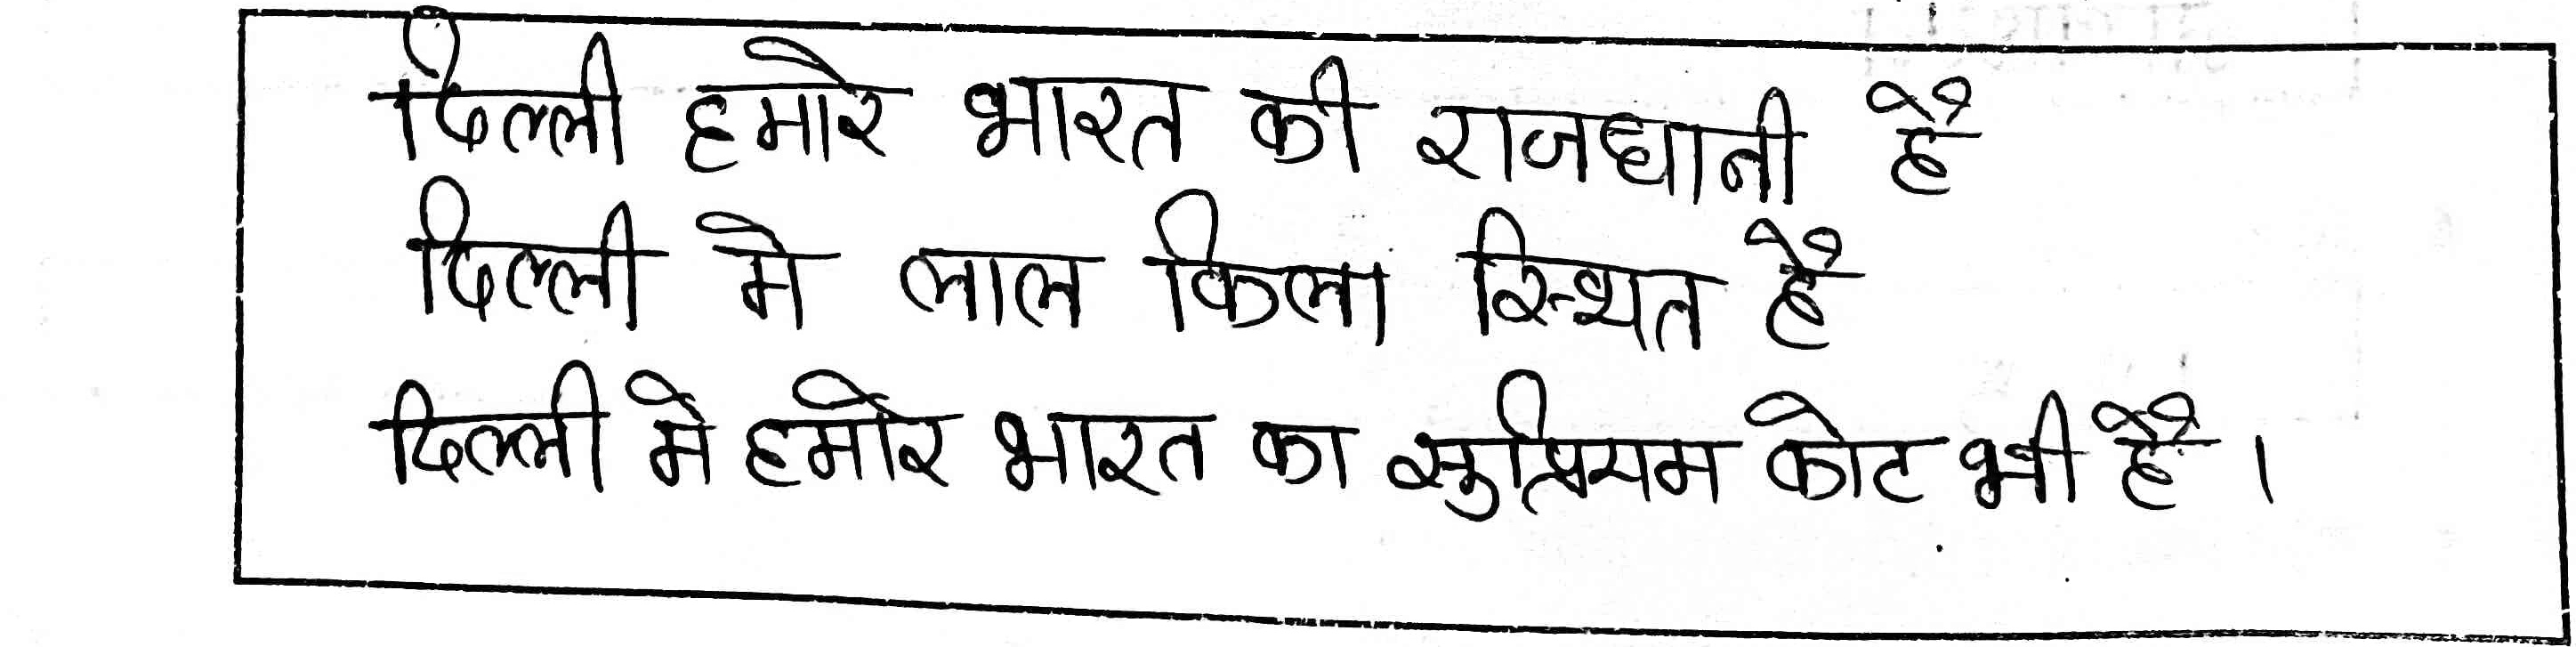 दिल्ली हमारे भारत की राजधानी है
दिल्ली मे लाल किला स्थित है
दिल्ली मे हमारे भारत का सुप्रियम कोट भी है ।